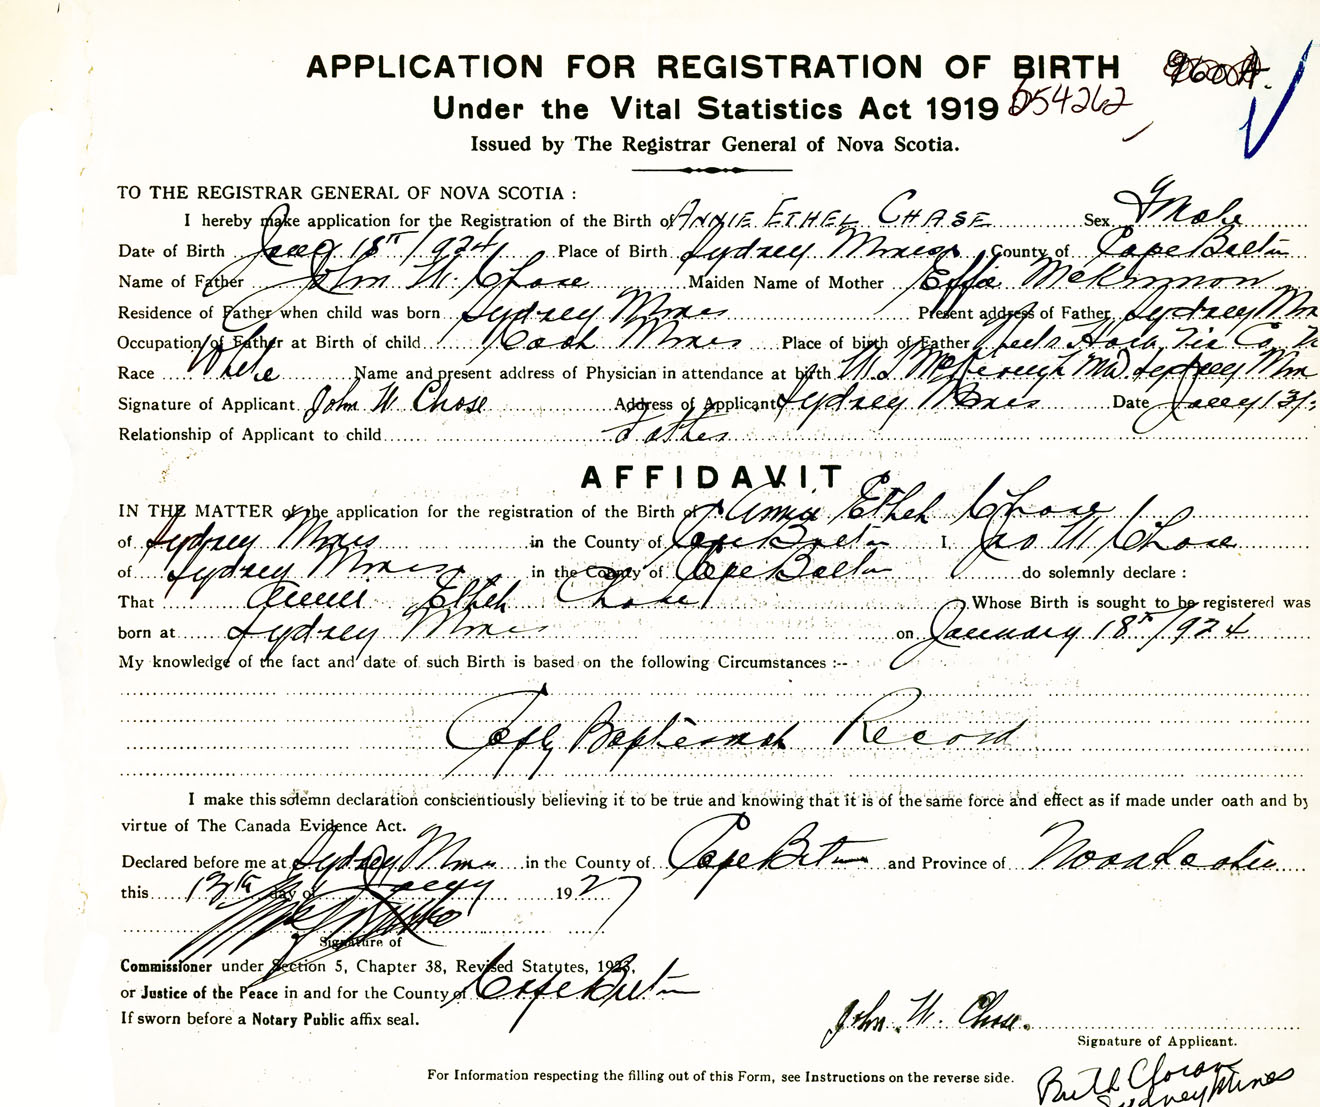 APPLICATION FOR REGISTRATION OF BIRTH
Under the Vital Statistics Act 1919 654262
Issued by The Registrar General of Nova Scotia.
TO THE REGISTRAR GENERAL OF NOVA SCOTIA :
I hereby make application for the Registration of the Birth of ANNIE ETHEL CHASE Sex
Date of Birth 18th 1924 Place of Birth Sydney Mines County of Cape Breton
Name of Father John W. Chase Maiden Name of Mother Effie McKinnon
Residence of Father when child was born Sydney Mines Present address of Father Sydney
Occupation of Father at Birth of child Mines Place of birth of Father
Race White Name and present address of Physician in attendance at birth Sydney
Signature of Applicant John W Chase Address of Applicant Sydney Mines Date
Relationship of Applicant to child Father
AFFIDAVIT
IN THE MATTER of the application for the registration of the Birth of Annie Ethel Chase
of Sydney Mines in the County of Cape Breton I. Jno W Chase
of Sydney Mines in the County of Cape Breton do solemnly declare :
That Annie Ethel Chase Whose Birth is sought to be registered was
born at Sydney Mines on January 18th 1924
My knowledge of the fact and date of such Birth is based on the following Circumstances :--
Copy Baptismal Record
I make this solemn declaration conscientiously believing it to be true and knowing that it is of the same force and effect as if made under oath and by
virtue of The Canada Evidence Act.
Declared before me at Sydney Mines in the County of Cape Breton and Province of Nova Scotia
this 13th day of 1927
Signature of
Commissioner under Section 5, Chapter 38, Revised Statutes, 1923,
or Justice of the Peace in and for the County of Cape Breton
If sworn before a Notary Public affix seal.
John. W. Chase.
Signature of Applicant.
For Information respecting the filling out of this Form, see Instructions on the reverse side.
Sydney Mines